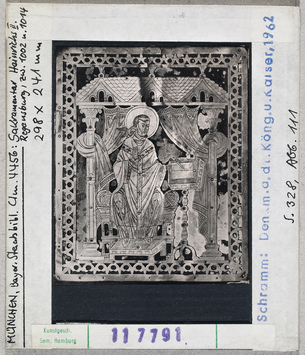 MÜNCHEN, Bayer. Staatsbibl. Clm. 4456: Sacramentar Heinrichs II.
Regensburg, zw. 1002 u. 1014
298 x 241 mm
Schramm: Denkm.a.dt. König.u.Kaiser, 1962
S. 328, Abb. 111
Kunstgesch.
Sem. Hamburg
117791